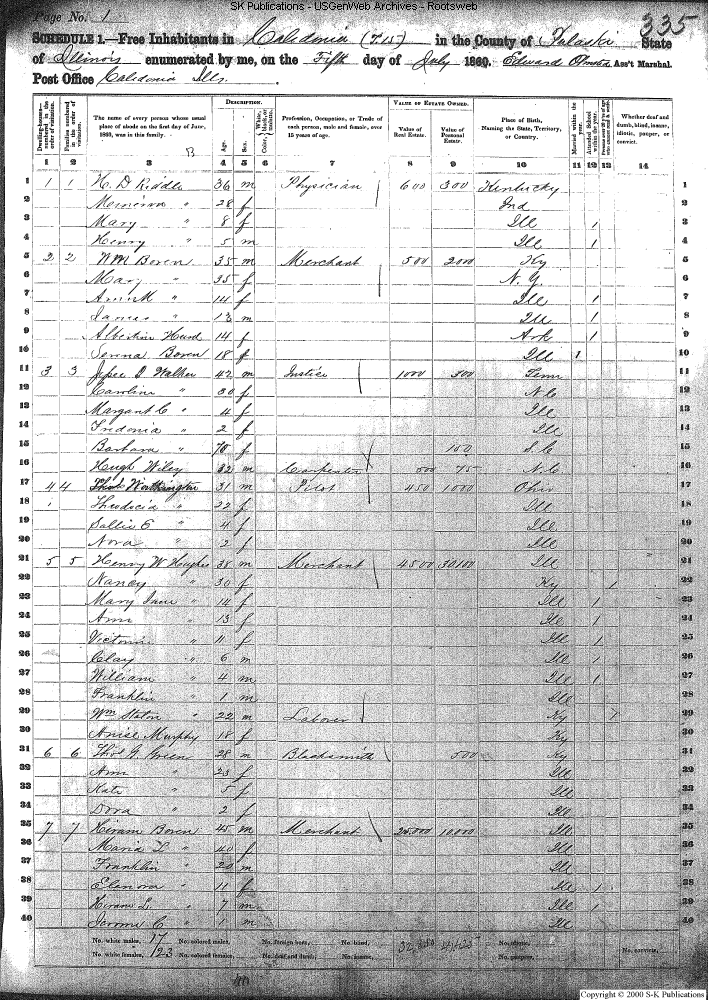 SK Publications - USGenWeb Archives - Rootsweb
Page No. 1
335
SCHEDULE 1.—Free Inhabitants in Caledonia (T.15) in the County of Pulaski State
of Illinois enumerated by me, on the Fifth day of July 1860. Edward Olmsted Ass't Marshal.
Post Office Caledonia Ills.
Dwelling-houses—numbered in the order of visitation. Families numbered in the order of visitation. The name of every person whose usual place of abode on the first day of June, 1860, was in this family. DESCRIPTION. Age. Sex. Color Profession, Occupation, or Trade of each person, male and female, over 15 years of age. VALUE OF ESTATE OWNED. Value of Real Estate. Value of Personal Estate. Place of Birth, Naming the State, Territory, or Country. Married within the year. Attended School within the year. Whether deaf and dumb, blind, insane, idiotic, pauper, or convict.
1 2 3 4 5 6 7 8 9 10 11 12 13 14
1 1 1 H. D Riddle 36 m Physician 600 300 Kentucky 1
2 " 28 f Ind 2
3 Mary " 8 f Ill 1 3
4 Henry " 5 m Ill 1 4
5 2 2 WM Boren 35 m Merchant 500 2000 Ky 5
6 Mary " 35 f N. Y. 6
7 Ann M " 14 f Ill 1 7
8 James " 13 m Ill 1 8
9 Albertine Hurd 14 f Ark 1 9
10 Serena Boren 18 f Ill 1 10
11 3 3 Jesse D Walker 42 m Justice 1000 300 Tenn 11
12 Caroline " 30 f N C 12
13 Margaret C " 4 f Ill 13
14 Fredonia " 2 f Ill 14
15 Barbara " 70 f 100 S. C 15
16 Hugh Wiley 32 m Carpenter 500 75 N. C 16
17 4 4 Thos Worthington 31 m Pilot 450 1000 Ohio 17
18 Theodocia " 22 f Ill 18
19 Sallie E " 4 f Ill 19
20 Nora " 2 f Ill 20
21 5 5 Henry W Hughes 38 m Merchant 4500 30100 Ill 21
22 Nancy " 30 f Ky 1 22
23 Mary Jane " 14 f Ill 1 23
24 Ann " 13 f Ill 1 24
25 Victoria " 11 f Ill 1 25
26 Clay " 6 m Ill 1 26
27 William " 4 m Ill 1 27
28 Franklin " 1 m Ill 28
29 Wm Staton 22 m Labourer Ky 29
30 Murphy 18 f Ky 30
31 6 6 Thos Green 28 m Blacksmith 500 Ky 31
32 Ann " 23 f Ill 32
33 Kate " 5 f Ill 33
34 Dora " 2 f Ill 34
35 7 7 Hiram Boren 45 m Merchant 25,000 10,000 Ill 35
36 Maria L " 40 f Ill 36
37 Franklin " 20 m Ill 37
38 Elenora " 11 f Ill 1 38
39 Hiram L. " 7 m Ill 1 39
40 Jerome C " 1 m Ill 40
No. white males, 17 No. colored males, No. foreign born, No. blind, No. idiotic,
No. white females, 23 No. colored females, No. deaf and dumb, No. insane, No. paupers, No. convicts,
Copyright © 2000 S-K Publications